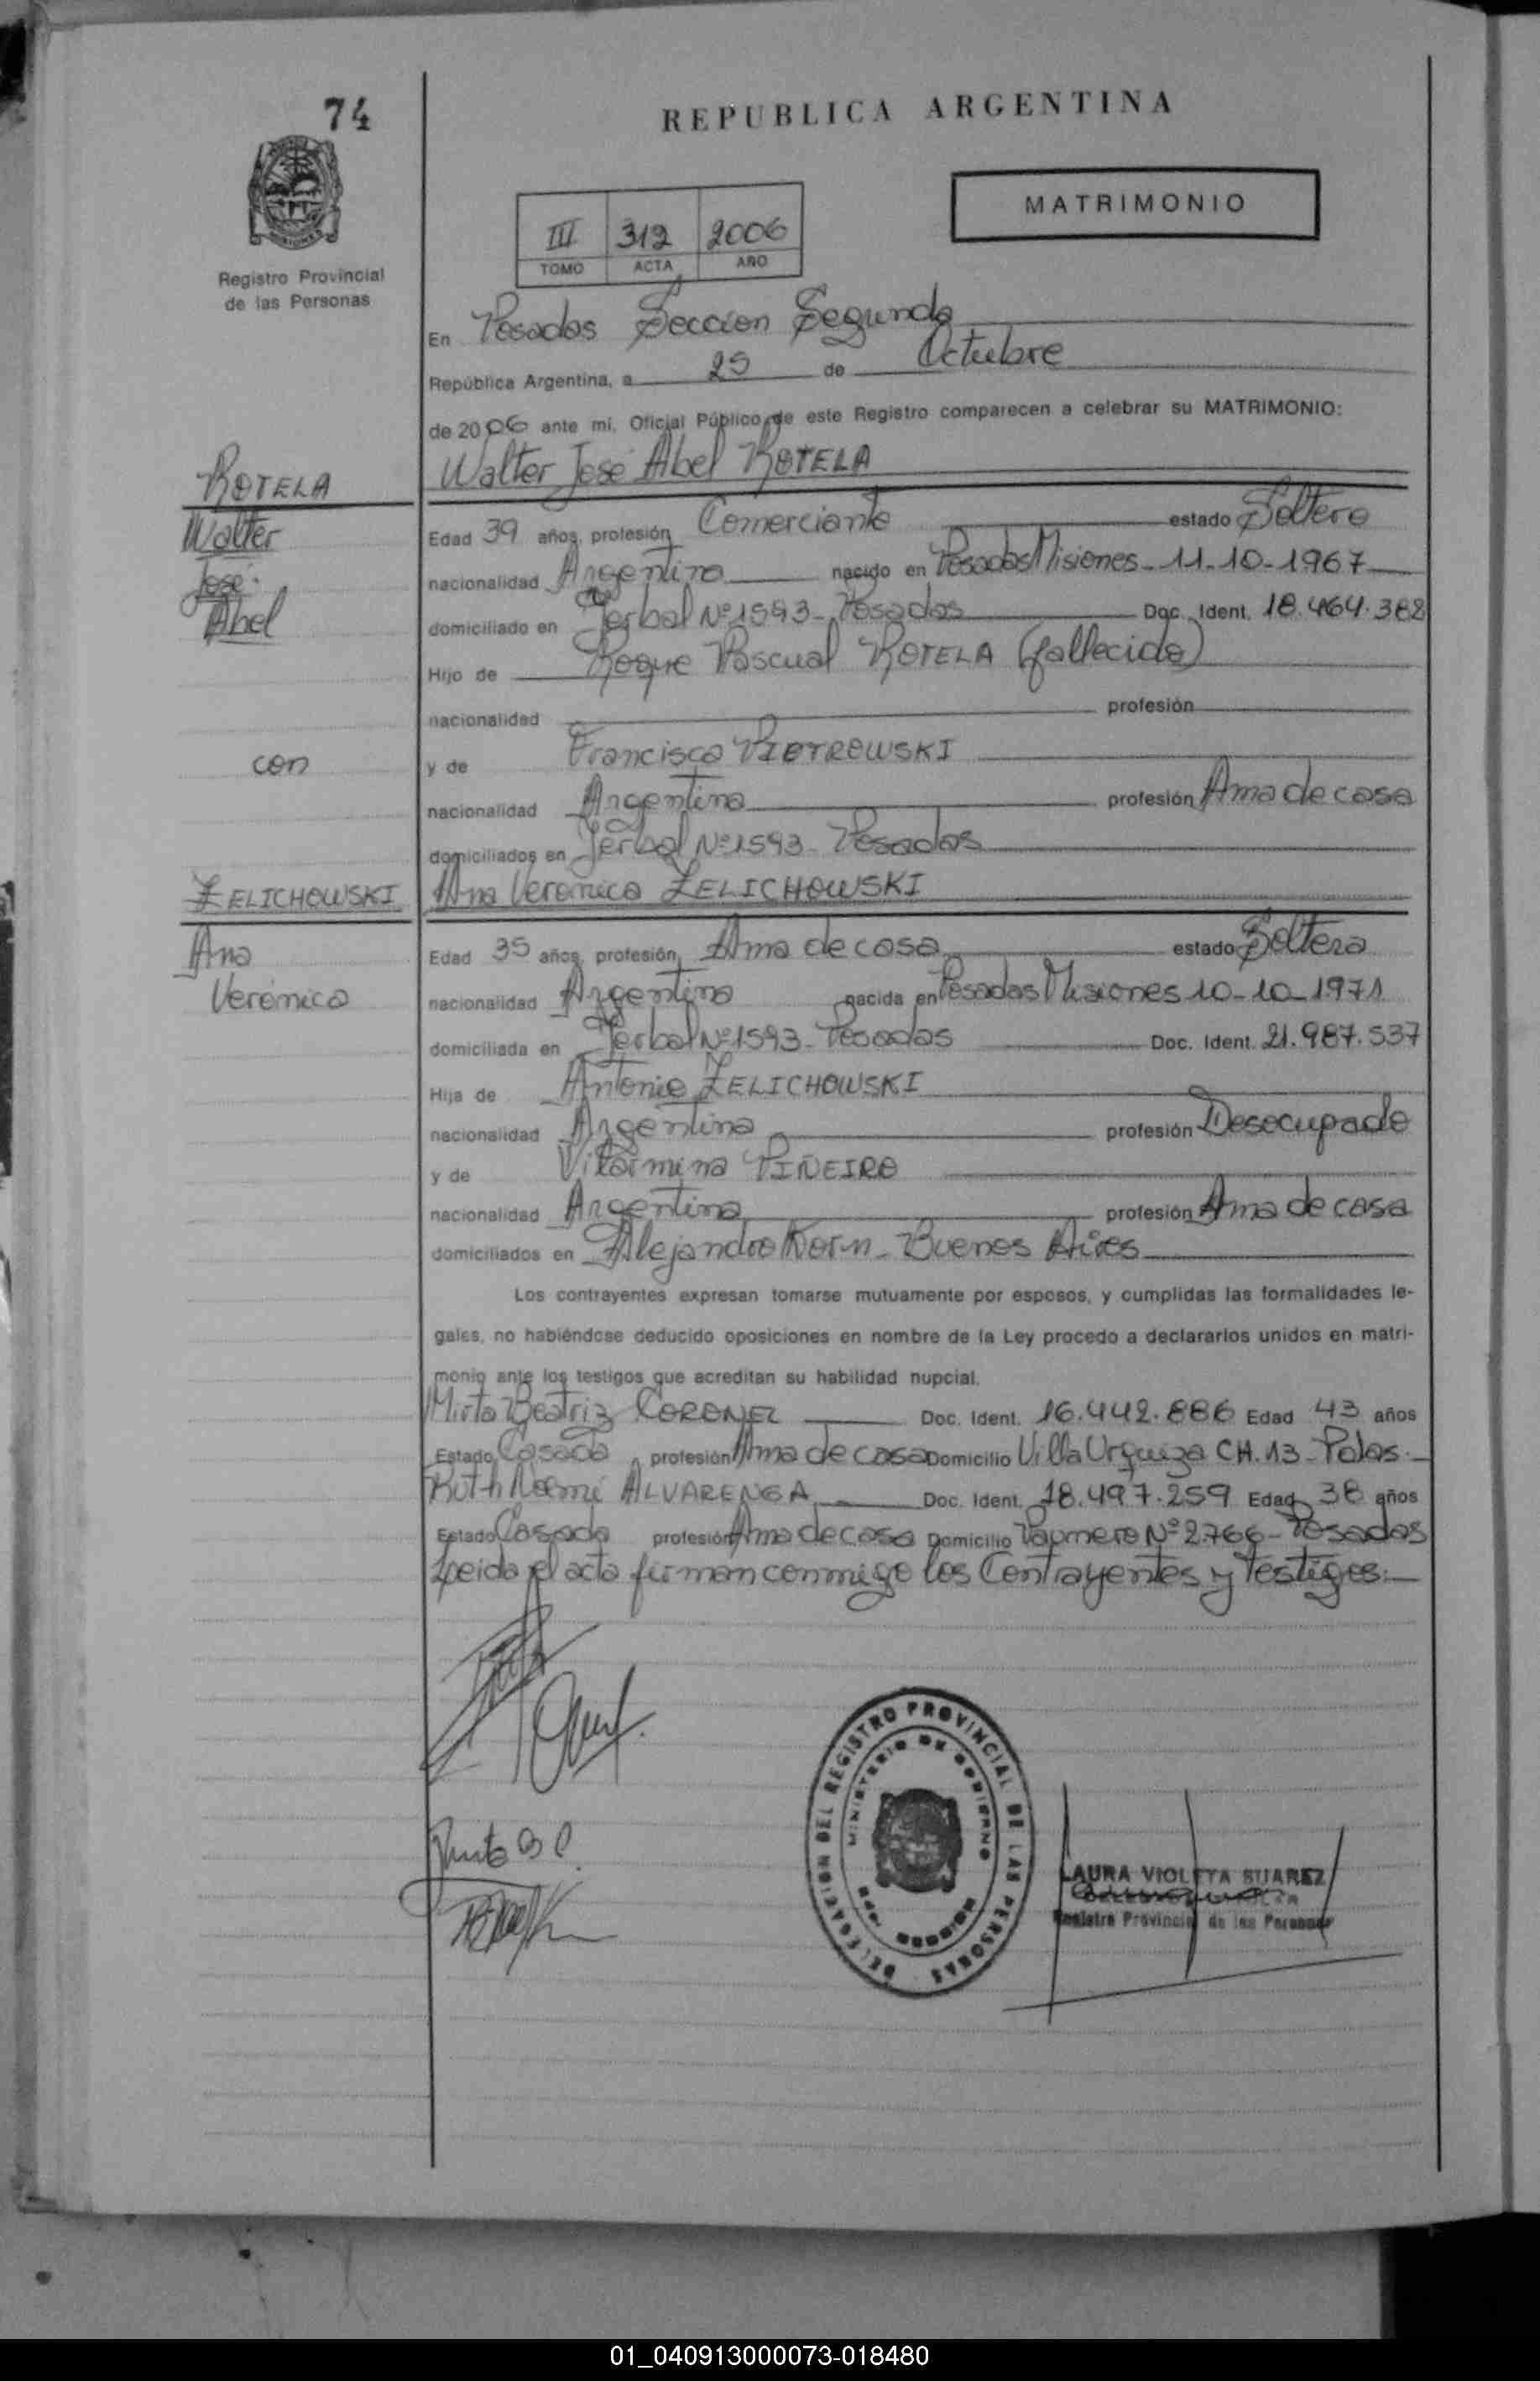 74
REPUBLICA ARGENTINA
MATRIMONIO
III 312 2006
TOMO ACTA AÑO
MISIONES
Registro Provincial
de las Personas
En Posadas Seccion Segunda
República Argentina, a 25 de Octubre
de 2006 ante mi, Oficial Público de este Registro comparecen a celebrar su MATRIMONIO:
ROTELA
Walter José Abel ROTELA
Walter
José
Abel
Edad 39 años, profesión Comerciante estado Soltero
nacionalidad Argentina nacido en Posadas Misiones - 11-10-1967
domiciliado en Yerbal Nº 1593 - Posadas Doc. Ident. 18.464.382
Hijo de Roque Pascual ROTELA (fallecido)
nacionalidad profesión
con
y de Francisca PIOTROWSKI
nacionalidad Argentina profesión Ama de casa
domiciliados en Yerbal Nº 1593 - Posadas
ZELICHOWSKI
Ana Veronica ZELICHOWSKI
Ana
Verónica
Edad 35 años, profesión, Ama de casa estado Soltera
nacionalidad Argentina nacida en Posadas Misiones 10-10-1971
domiciliada en Yerbal Nº 1593 - Posadas Doc. Ident. 21.987.537
Hija de Antonio ZELICHOWSKI
nacionalidad Argentina profesión Desocupado
y de Vitormina PIÑEIRO
nacionalidad Argentina profesión Ama de casa
domiciliados en Alejandro Korn - Buenos Aires
Los contrayentes expresan tomarse mutuamente por esposos, y cumplidas las formalidades le-
gales, no habiéndose deducido oposiciones en nombre de la Ley procedo a declararlos unidos en matri-
monio ante los testigos que acreditan su habilidad nupcial.
Mirta Beatriz CORONEL Doc. Ident. 16.442.886 Edad 43 años
Estado Casada profesión Ama de casa Domicilio Villa Urquiza CH.13 - Pdas.
Ruth Noemí ALVARENGA Doc. Ident. 18.497.259 Edad 38 años
Estado Casada profesión Ama de casa Domicilio Paumero Nº 2766 - Posadas
Leida el acta firman conmigo los Contrayentes y Testigos.
DELEGACION DEL REGISTRO PROVINCIAL DE LAS PERSONAS
MINISTERIO DE GOBIERNO
LAURA VIOLETA SUAREZ
Registro Provincial de las Personas
01_040913000073-018480